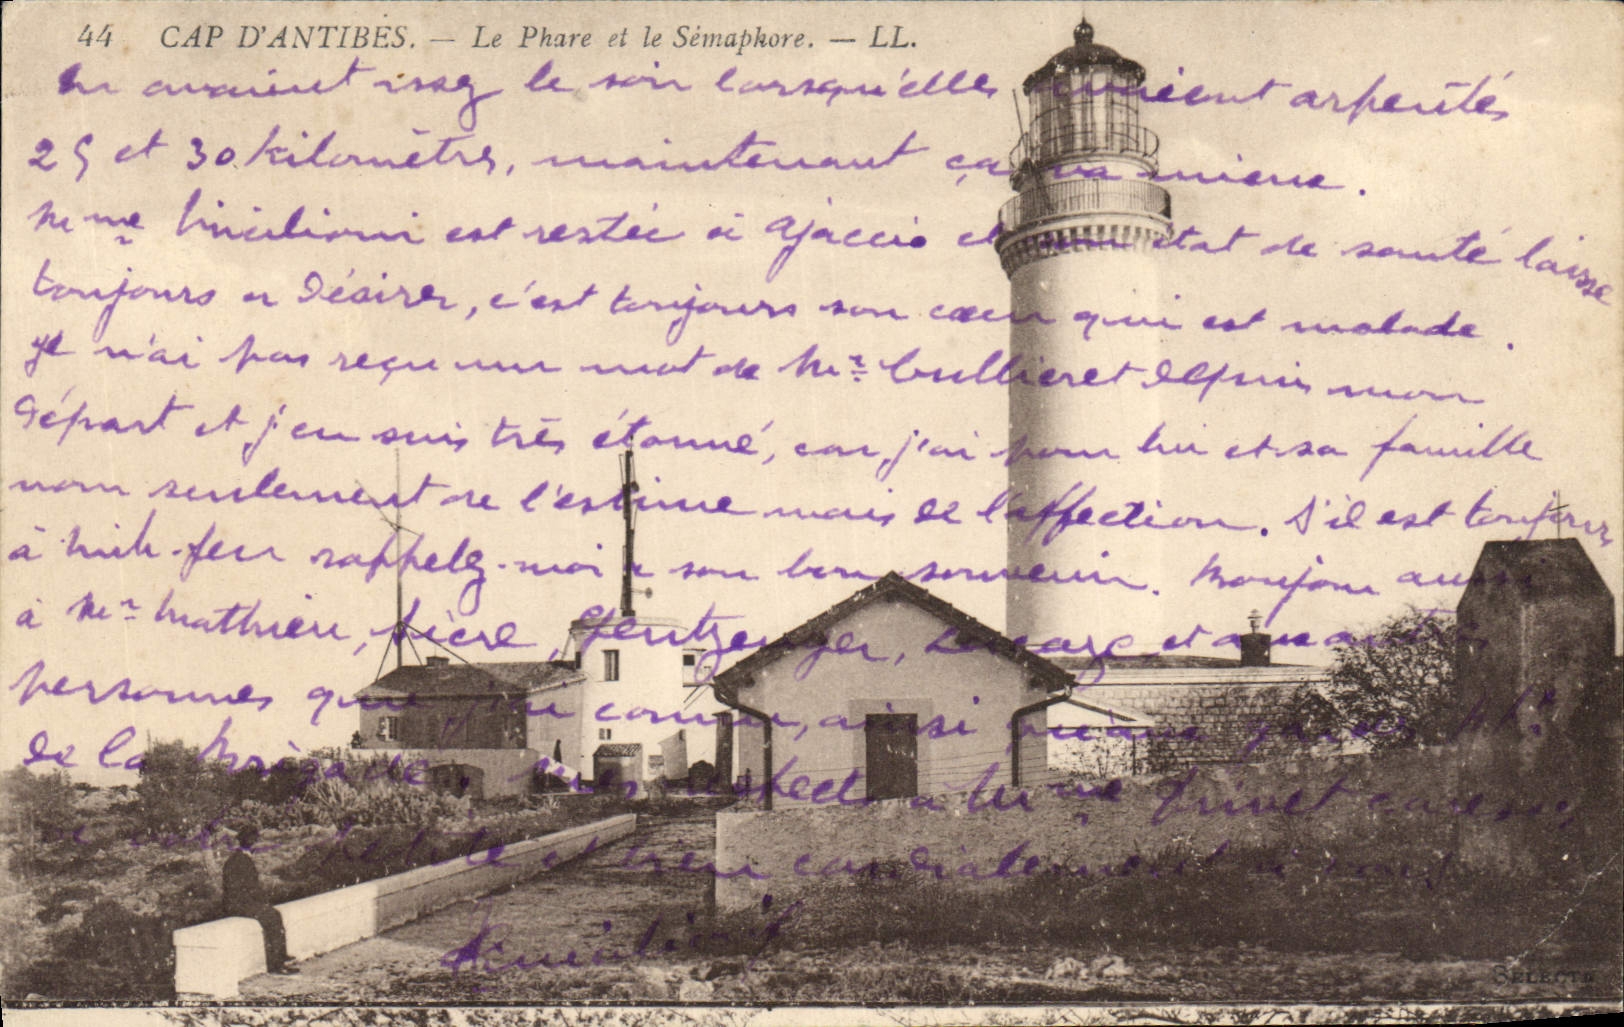 44 CAP D'ANTIBES. — Le Phare et le Sémaphore. — LL.
en avaient assez le soir lorsqu'elles avaient arpentés
25 et 30 kilomètres, maintenant ça va mieux.
Mme est restée à Ajaccio et son état de santé laisse
toujours a Désirer, c'est toujours son cœur qui est malade.
Je n'ai pas reçu un mot de Mr Cullieret Depuis mon
Départ et j'en suis très étonné, car j'ai pour lui et sa famille
non seulement de l'estime mais de l'affection. S'il est toujours
à rappelez-moi a son bon souvenir. Bonjour aussi
à Mr Mathieu, et aux autres
personnes que j'ai connu, ainsi qu'aux
de la Brigade, mes respects à Mme Privet caresses
a votre petite et bien cordialement à vous
SELECTA